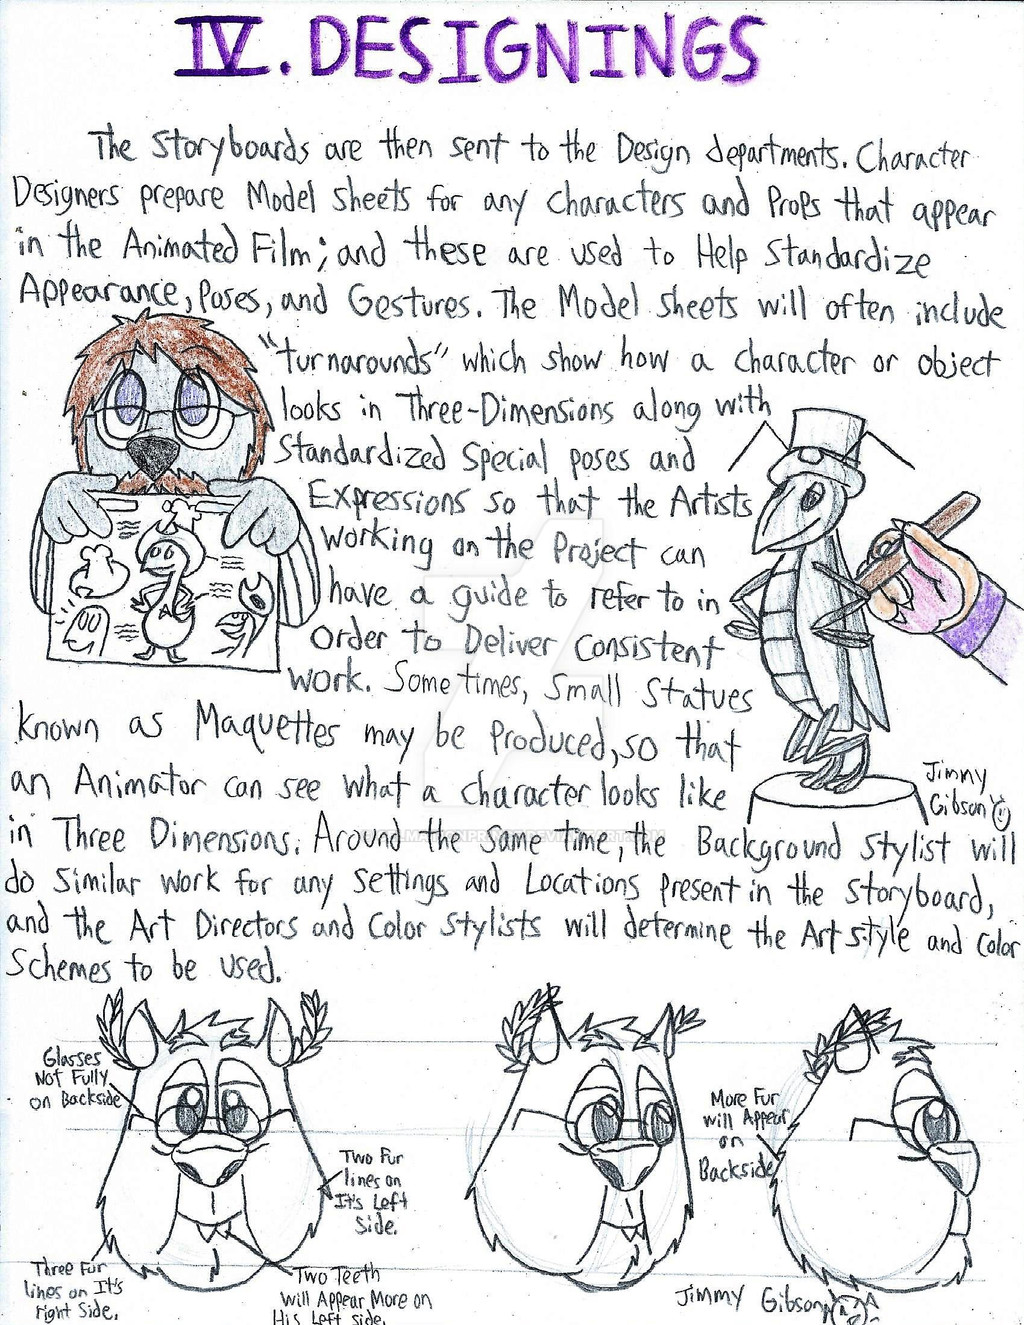 IV. DESIGNINGS
The Storyboards are then sent to the Design departments. Character
Designers prepare Model Sheets for any Characters and Props that appear
in the Animated Film; and these are used to Help Standardize
Appearance, Poses, and Gestures. The Model Sheets will often include
"turnarounds" which show how a character or object
looks in Three-Dimensions along with
Standardized Special poses and
Expressions so that the Artists
working on the Project can
have a guide to refer to in
Order to Deliver Consistent
work. Sometimes, Small Statues
known as Maquettes may be Produced, so that
an Animator can see what a character looks like
in Three Dimensions. Around the same time, the Background Stylist will
do similar work for any Settings and Locations present in the storyboard,
and the Art Directors and Color Stylists will determine the Art style and Color
Schemes to be used.
Jimmy
Gibson
Glasses
Not Fully
on Backside
Two Fur
lines on
It's Left
Side.
Three Fur
lines on It's
right Side.
Two Teeth
will Appear More on
His Left side.
More Fur
will Appear
on
Backside
Jimmy Gibson